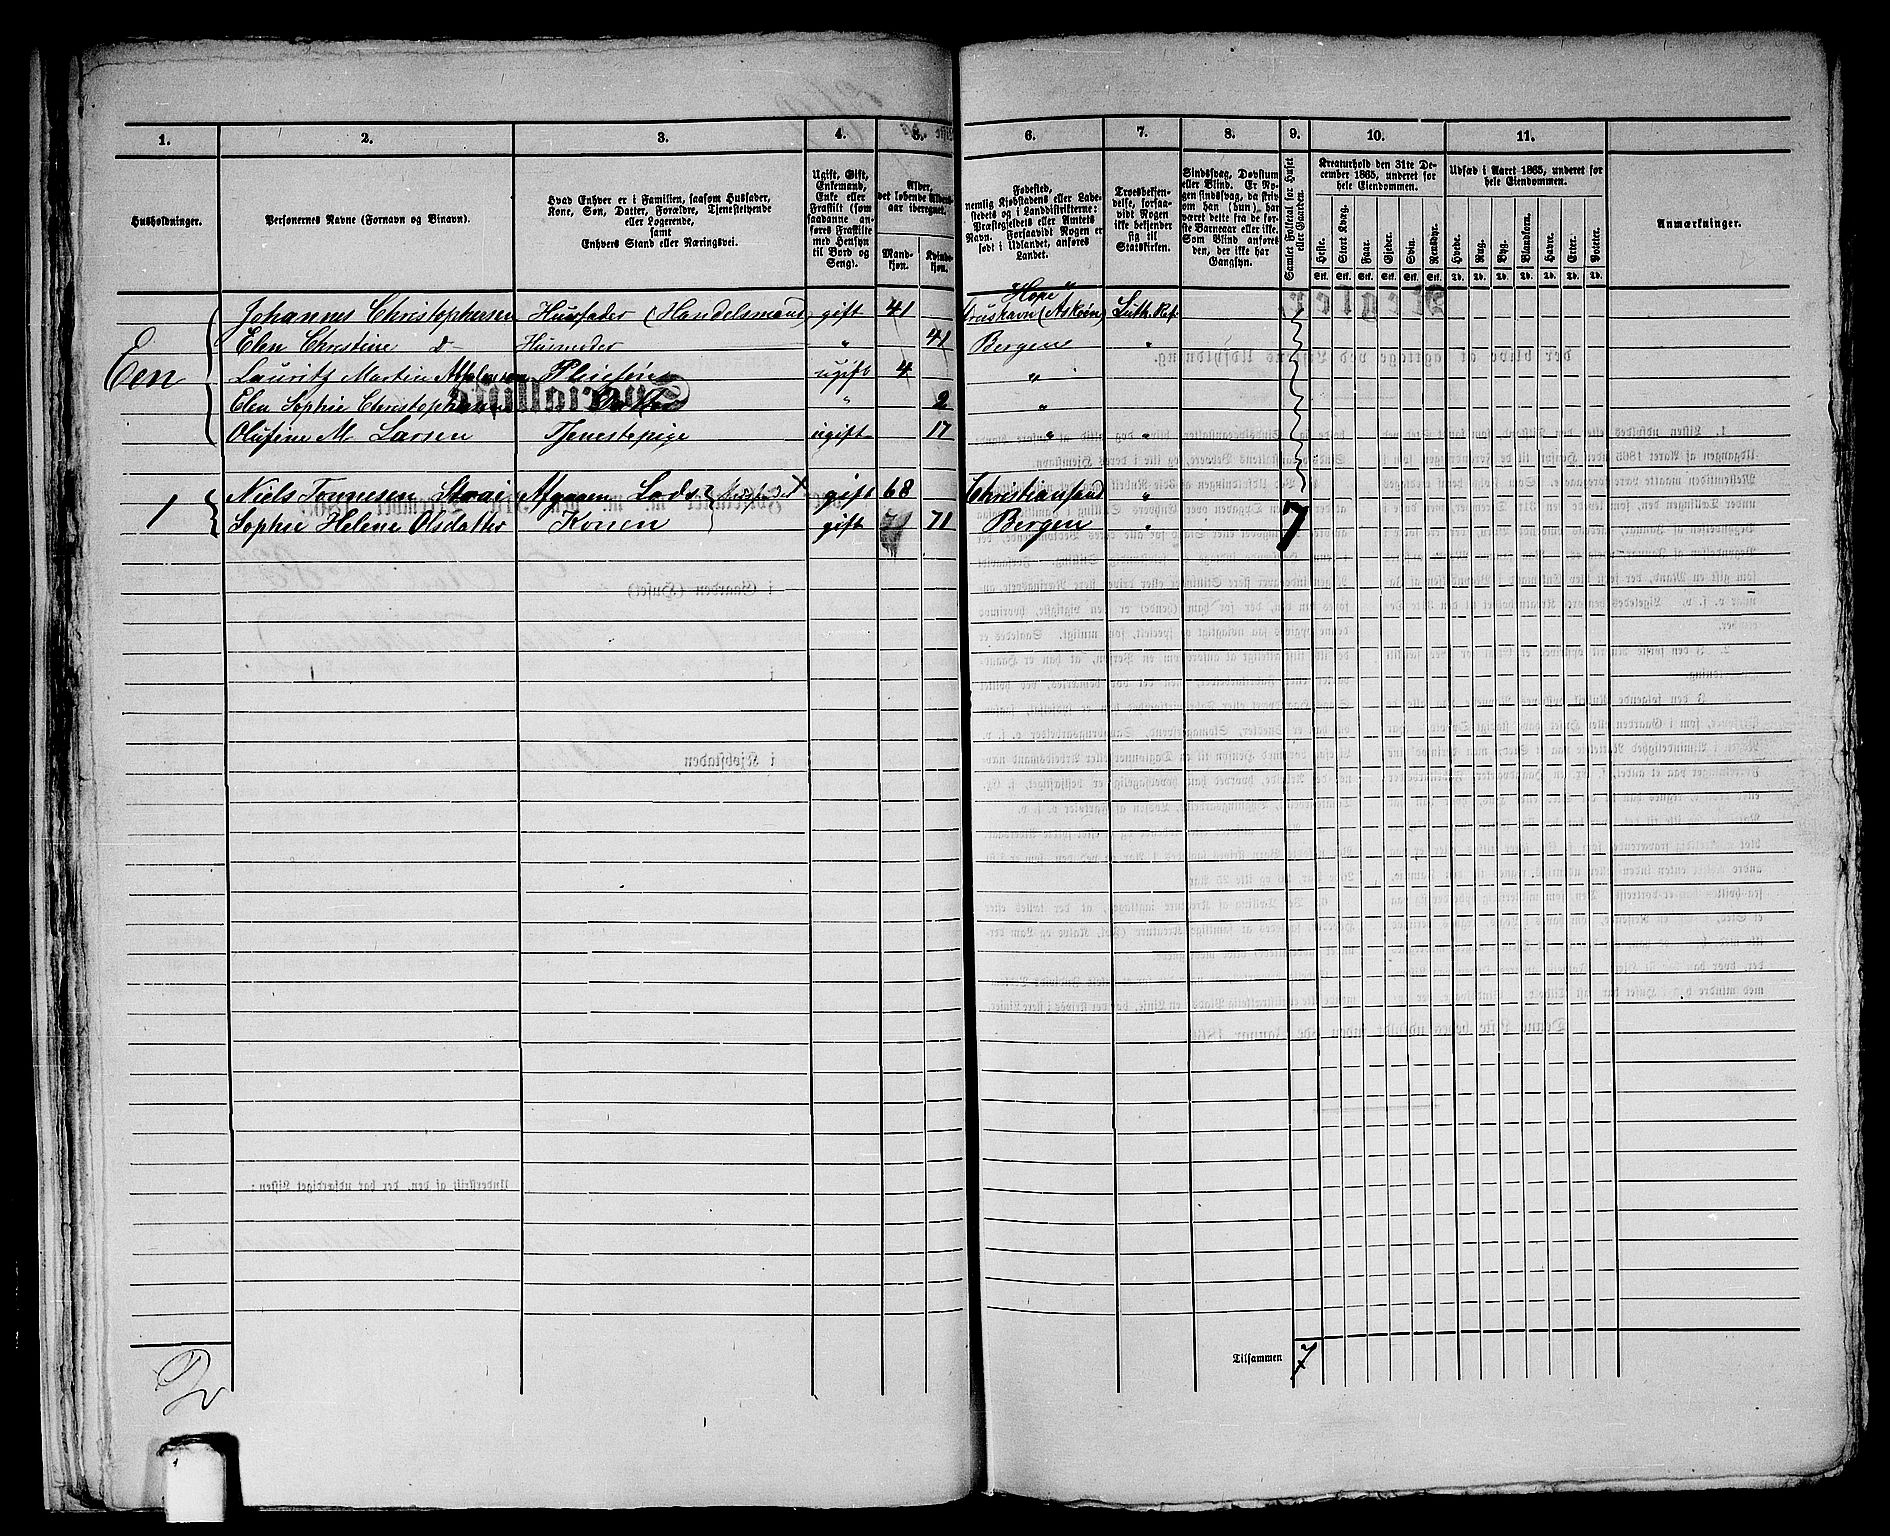 1. 2. 3. 4. 5. 6. 7. 8. 9. 10. 11.
Husholdninger.
Personernes Navne (Fornavn og Binavn).
Hvad Enhver er i Familien, saasom Husfader,
Kone, Søn, Datter, Forældre, Tjenestetyende
eller Logerende,
samt
Enhvers Stand eller Næringsvei.
Ugift, Gift,
Enkemand,
Enke eller
Fraskilt (som
saadanne anføres Fraskilte
med Hensyn
til Bord og
Seng).
Alder,
det løbende Alders-
aar iberegnet.
Mandkjøn.
Kvindekjøn.
Fødested,
nemlig Kjøbstadens eller Ladestedets og i Landdistrikterne:
Præstegjeldets eller Amtets
Navn. Forsaavidt Nogen er
født i Udlandet, anføres
Landet.
Troesbekjendelse, forsaavidt Nogen
ikke bekjender
sig til
Statskirken.
Sindssvag, Døvstum
eller Blind. Er Nogen sindssvag, da skrives om han (hun) har
været dette fra de første Barneaar eller ikke.
Som Blind anføres
den, der ikke har
Gangsyn.
Samlet Folketal for Huset
eller Gaarden.
Kreaturhold den 31te December 1865, underet for
hele Eiendommen.
Heste. Stort Kvæg. Faar. Gjeder. Svin. Rensdyr.
Udsæd i Aaret 1865, underet for
hele Eiendommen.
Hvede. Rug. Byg. Blandkorn. Havre. Erter. Poteter.
Anmærkninger.
Hope
Johannes Christophersen Huusfader (Handelsmand) gift 41 (Askøen) Luth. Ref
Een
Elen Christine d Husmoder " 41 Bergen "
Lauritz Martin Pleiesøn ugift 4 "
Elen Sophie Christophersen Datter " 2 "
Olufine M Larsen Tjenestepige ugift 17 " "
1
Niels Tønnesen Afgaaen Lods gift 68 Christiansand "
Sophie Helene Olsdatter Konen gift 71 Bergen " 7
Tilsammen 7
2